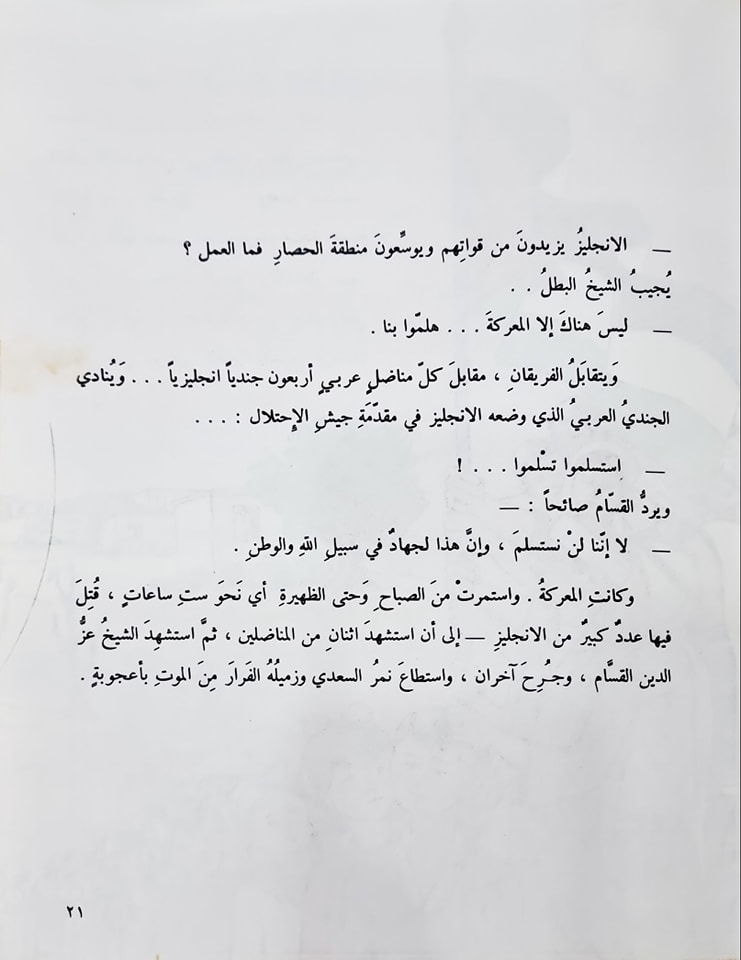 — الانجليزُ يزيدونَ من قواتِهم ويوسِّعونَ منطقةَ الحصارِ فما العمل ؟
يُجيبُ الشيخُ البطلُ . .
— ليسَ هناكَ إلا المعركةَ . . . هلمّوا بنا .
وَيتقابَلُ الفريقانِ ، مقابلَ كلّ مناضلٍ عربيٍ أربعون جندياً انجليزياً . . . وَيُنادي
الجنديُ العربيُ الذي وضعه الانجليز في مقدّمَةِ جيشِ الإِحتلال : . . .
— اِستسلموا تسْلموا . . . !
ويردُّ القسّامُ صائحاً : —
— لا إنّنا لنْ نستسلمَ ، وإنَّ هذا لجهادٌ في سبيلِ اللّهِ والوطنِ .
وكانتِ المعركةُ . واستمرتْ منَ الصباحِ وَحتى الظهيرةِ أي نَحوَ ستِ ساعاتٍ ، قُتِلَ
فيها عددٌ كبيرٌ من الانجليزِ — إلى أن استشهدَ اثنانِ من المناضلين ، ثمَّ استشهِدَ الشيخُ عزُّ
الدين القسَّام ، وجُرِحَ آخران ، واستطاعَ نمرُ السعدي وزميلُهُ الفَرارَ مِنَ الموتِ بأعجوبةٍ .
٢١